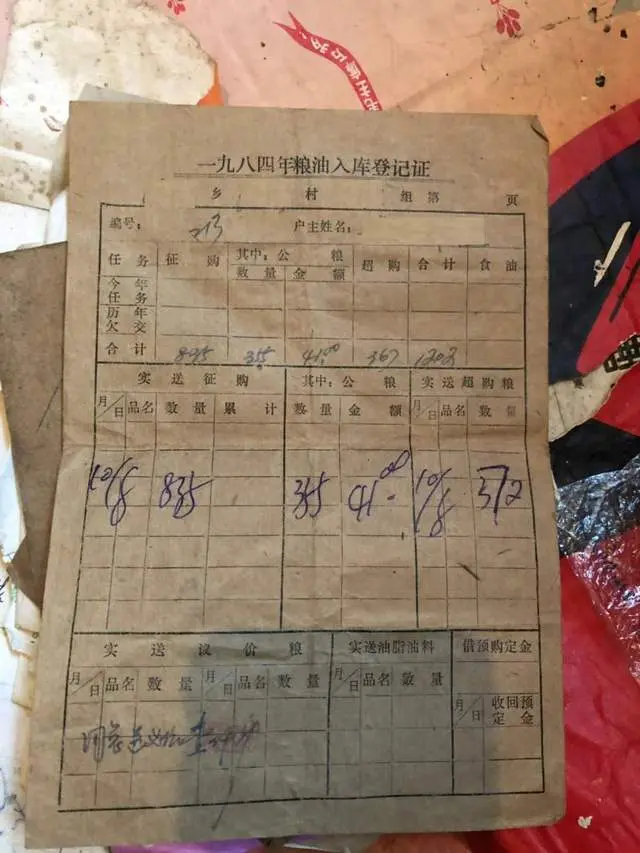 一九八四年粮油入库登记证
乡 村 组第 页
编号： 213 户主姓名：
任务 征购 其中：公粮 超购 合计 食油
数量 金额
今年任务
历年欠交
合计 835 355 41.00 367 1202
实送征购 其中：公粮 实送超购粮
月/日 品名 数量 累计 数量 金额 月/日 品名 数量
10/8 835 355 41.00 10/8 372
实送议价粮 实送油脂油料 借预购定金
月/日 品名 数量 月/日 品名 数量 月/日 品名 数量
月/日 收回预定金